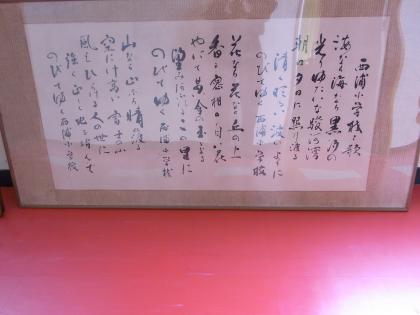 西浦小学校々歌
海なら海なら黒潮の
光りゆたかな駿河湾
朝日夕日に照り渡る
清く明るい波のように
のびてゆく西浦小学校
花なら花なら丘の上
香る蜜柑の白い花
やがて黄金の玉となる
望みの
の里に
のびてゆく西浦小学校
山なら山なら晴れ渡る
空にけ高い富士の山
風もひらける人の世に
強く正しく地を踏んで
のびてゆく西浦小学校